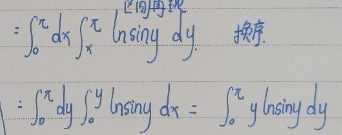 区间再现
= ∫₀^π dx ∫ₓ^π lnsiny dy. 换序.
= ∫₀^π dy ∫₀^y lnsiny dx = ∫₀^π y lnsiny dy